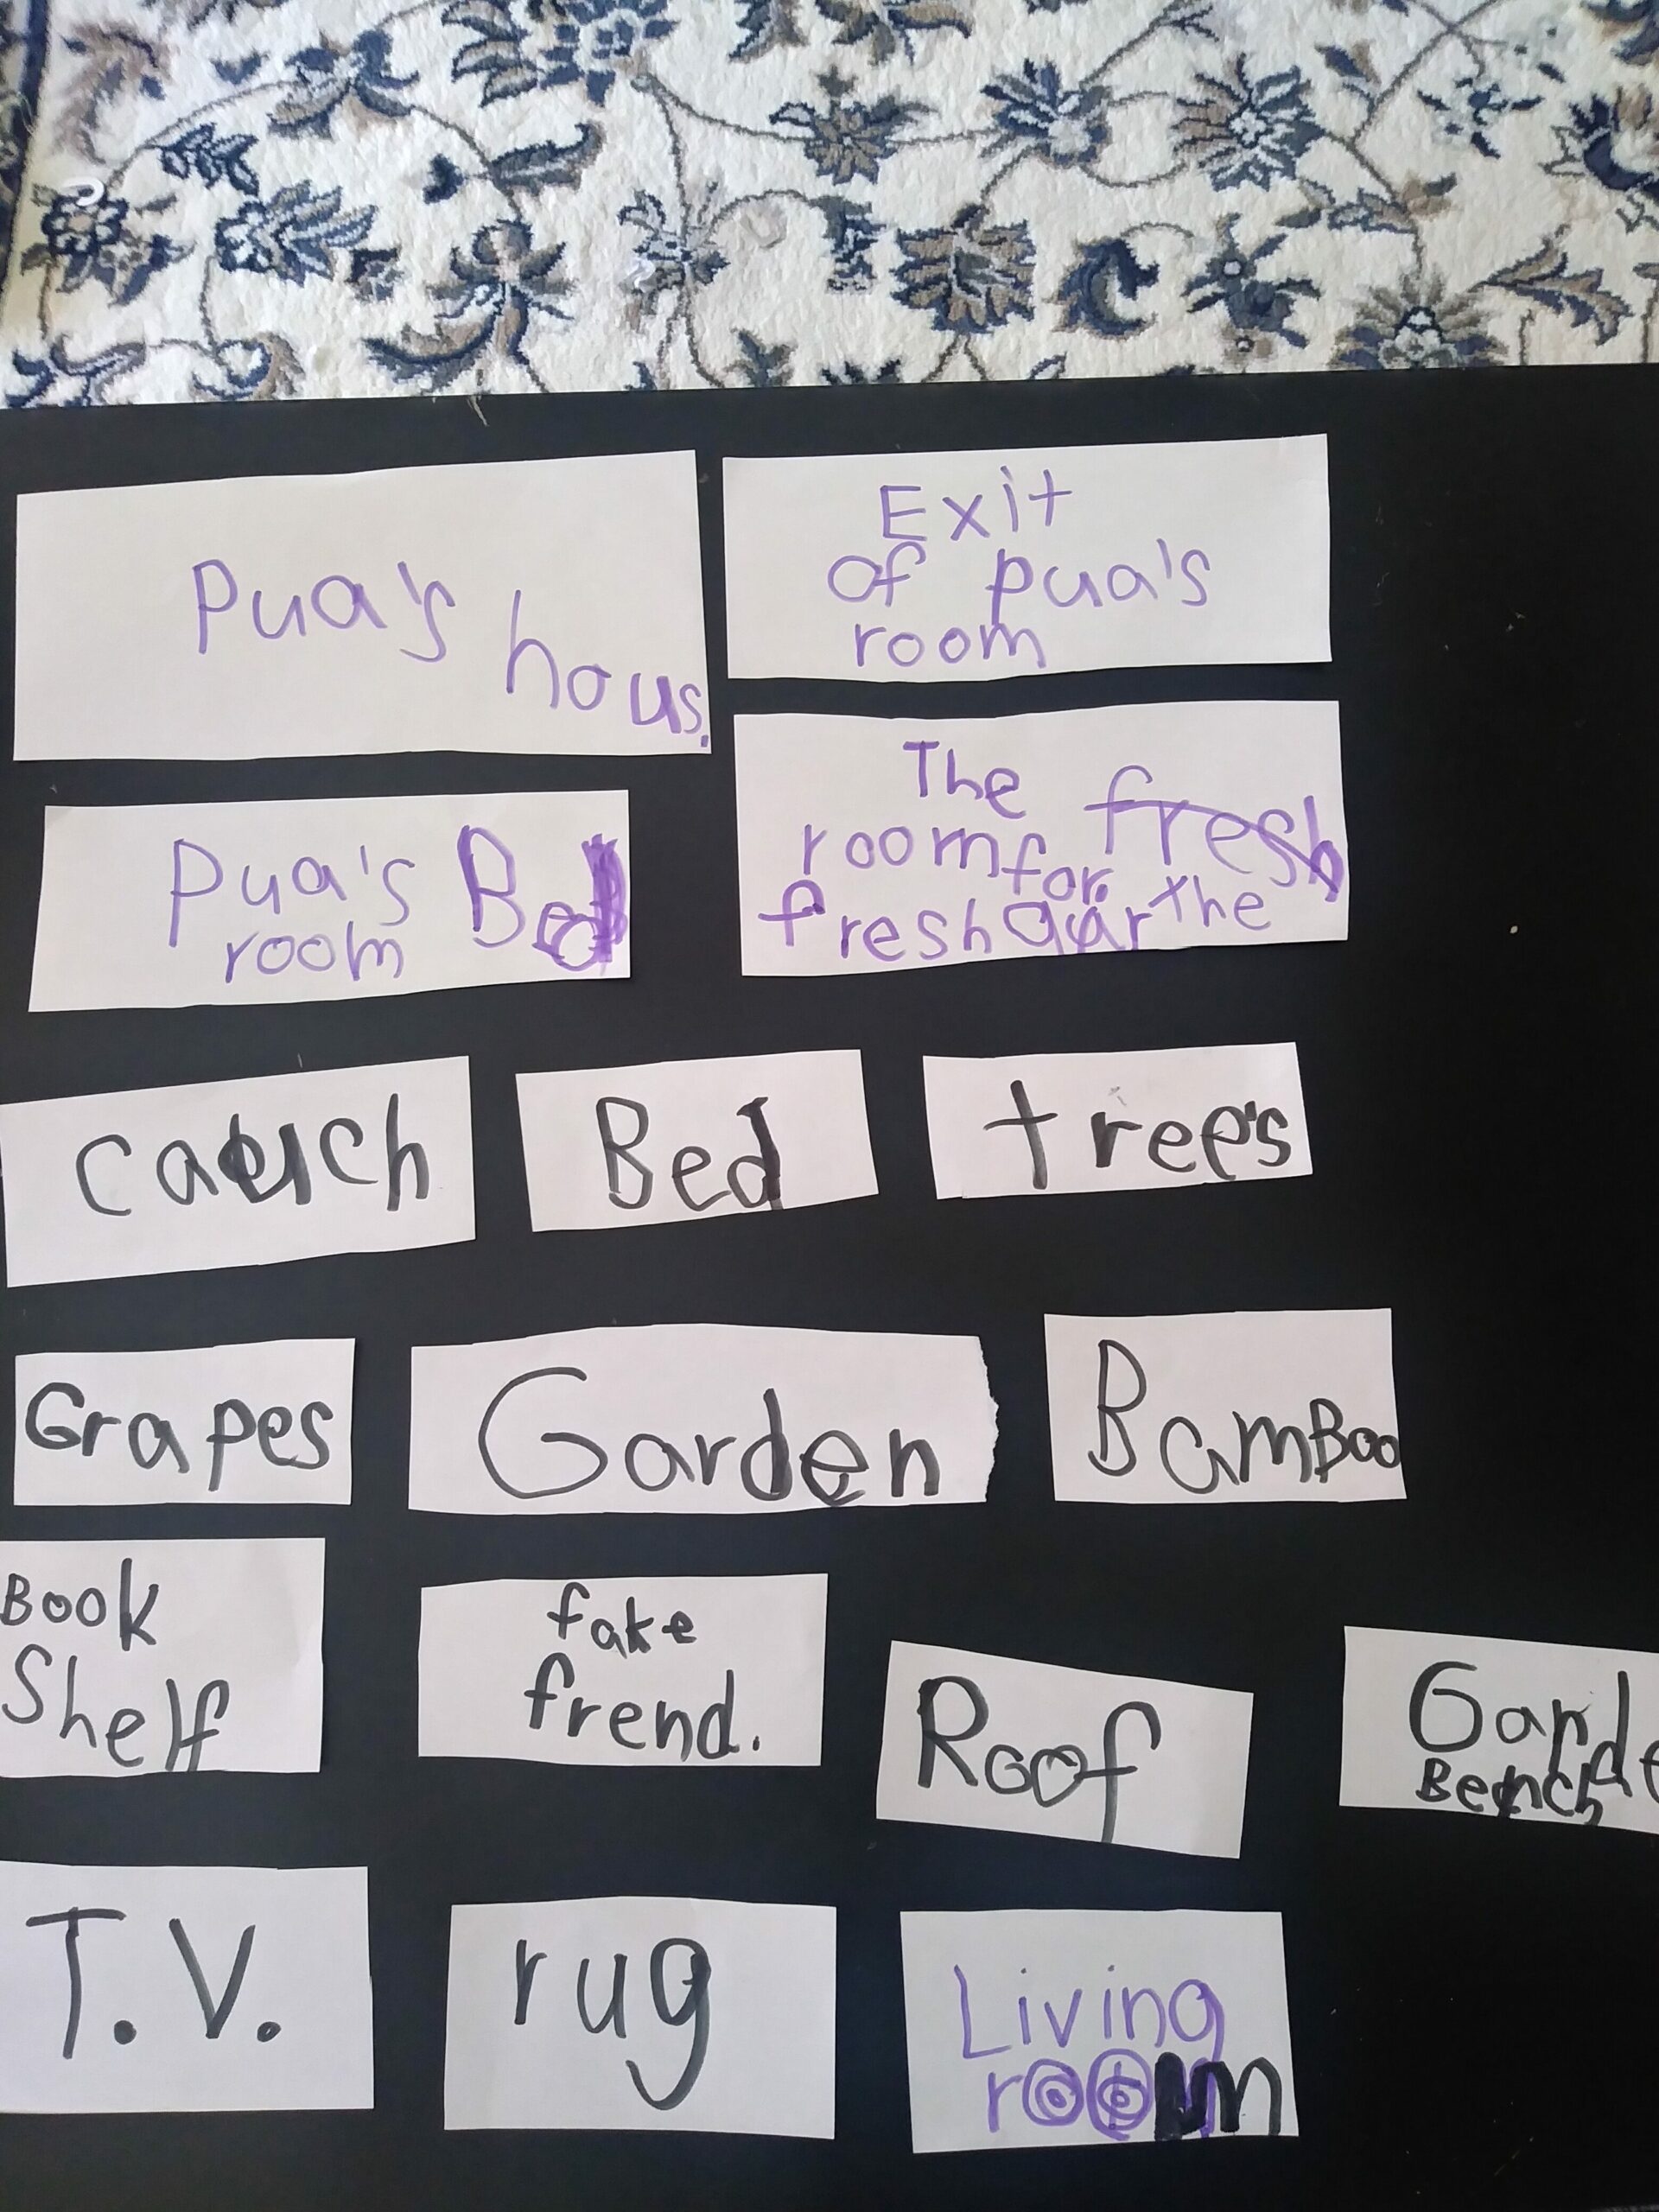 Pua's hous.
Exit
of pua's
room
Pua's Bed
room
The fresh
room for the
fresh air
Bed
tree's
Grapes
Garden
BamBoo
BOOK
Shelf
fake
frend.
Roof
Garde
Bench
T.V.
rug
Living
room